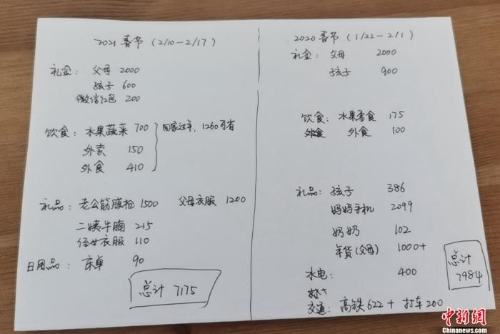 2021 春节 (2/10-2/17)
礼金: 父母 2000
孩子 600
微信红包 200
饮食: 水果蔬菜 700
外卖 150
外食 410
回家过年, 1260可省
礼品: 老公筋膜枪 1500 父母衣服 1200
二姨牛腩 215
侄女衣服 110
日用品: 京东 90
总计 7175
2020 春节 (1/22-2/1)
礼金: 父母 2000
孩子 900
饮食: 水果零食 175
外食 100
礼品: 孩子 386
奶奶手机 2099
奶奶 102
年货(父母) 1000+
水电: 400
交通: 高铁 622 + 打车 200
总计
7984
中新网
Chinanews.com